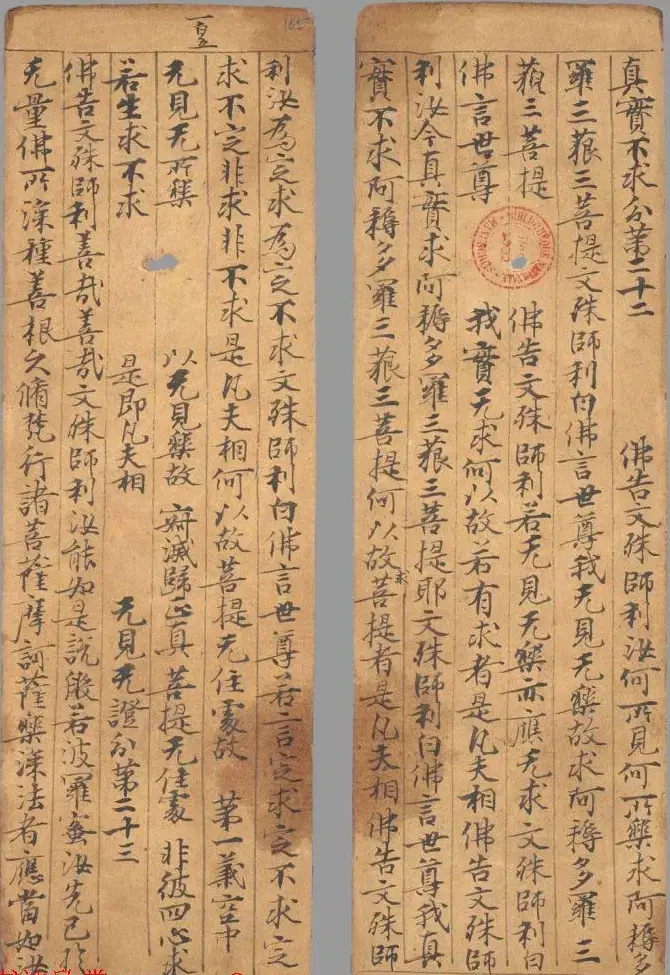 真實不求分第二十二 佛告文殊師利汝何所見何所樂求阿耨多
羅三藐三菩提文殊師利白佛言世尊我无見无樂故求阿耨多羅三
藐三菩提 佛告文殊師利若无見无樂亦應无求文殊師利白
佛言世尊 我實无求何以故若有求者是凡夫相佛告文殊師
利汝今真實求阿耨多羅三藐三菩提耶文殊師利白佛言世尊我真
實不求阿耨多羅三藐三菩提何以故求菩提者是凡夫相佛告文殊師
利汝為定求為定不求文殊師利白佛言世尊若言定求定不求定
求不定非求非不求是凡夫相何以故菩提无住處故 第一義空中
无見无所樂 以无見樂故 寂滅歸正真 菩提无住處 非彼四心求
若生求不求 是即凡夫相 无見无證分第二十三
佛告文殊師利善哉善哉文殊師利汝能如是說般若波羅蜜汝先已於
无量佛所深種善根久脩梵行諸菩薩摩訶薩樂深法者應當如汝